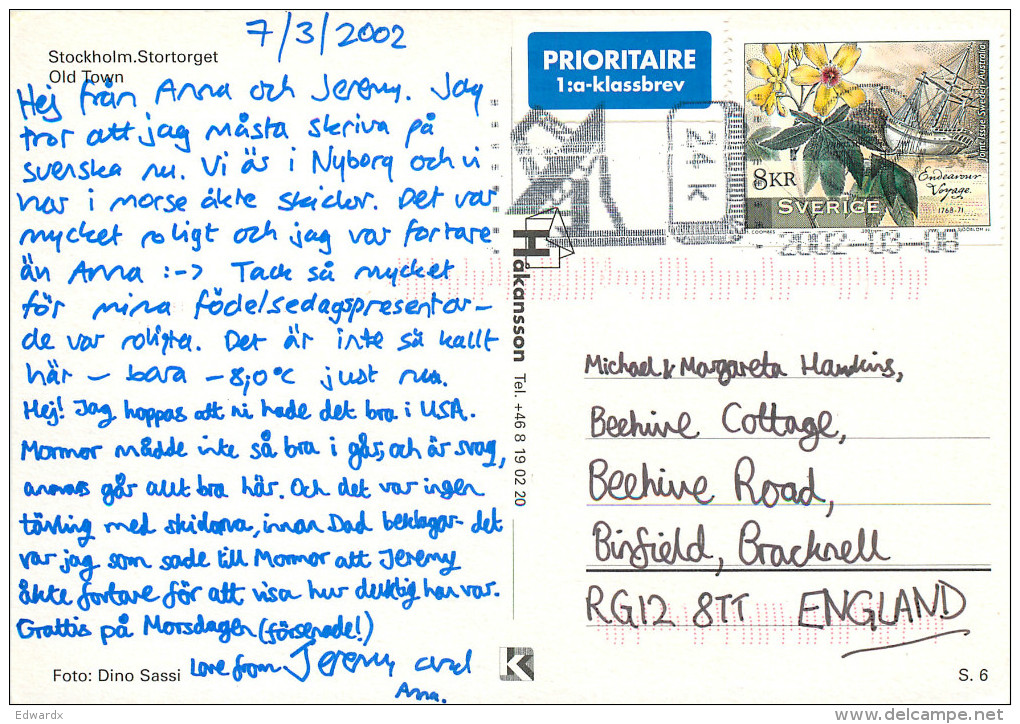 7/3/2002
Stockholm.Stortorget
Old Town
Hej från Anna och Jeremy. Jag
tror att jag måsta skriva på
svenska nu. Vi är i Nyborg och vi
har i morse åkte skidor. Det var
mycket roligt och jag var fortare
än Anna :-> Tack så mycket
för mina födelsedagspresentar –
de var roligta. Det är inte så kallt
här – bara -8,0°C just nu.
Hej! Jag hoppas att ni hade det bra i USA.
Mormor mådde inte så bra i går, och är svag,
annars går allt bra här. Och det var ingen
tävling med skidorna, innan Dad beklagar - det
var jag som sade till Mormor att Jeremy
åkte fortare för att visa hur duktig han var.
Grattis på Morsdagen (försenade!)
Love from Jeremy and
Anna.
Foto: Dino Sassi
Edwardx
Håkansson Tel. +46 8 19 02 20
K
PRIORITAIRE
1:a-klassbrev
24k
8KR
SVERIGE
Endeavour
Voyage.
1768-71
Joint Issue Sweden-Australia
2002-03-08
Michael & Margareta Hawkins,
Beehive Cottage,
Beehive Road,
Binfield, Bracknell
RG12 8TT ENGLAND
S. 6
www.delcampe.net